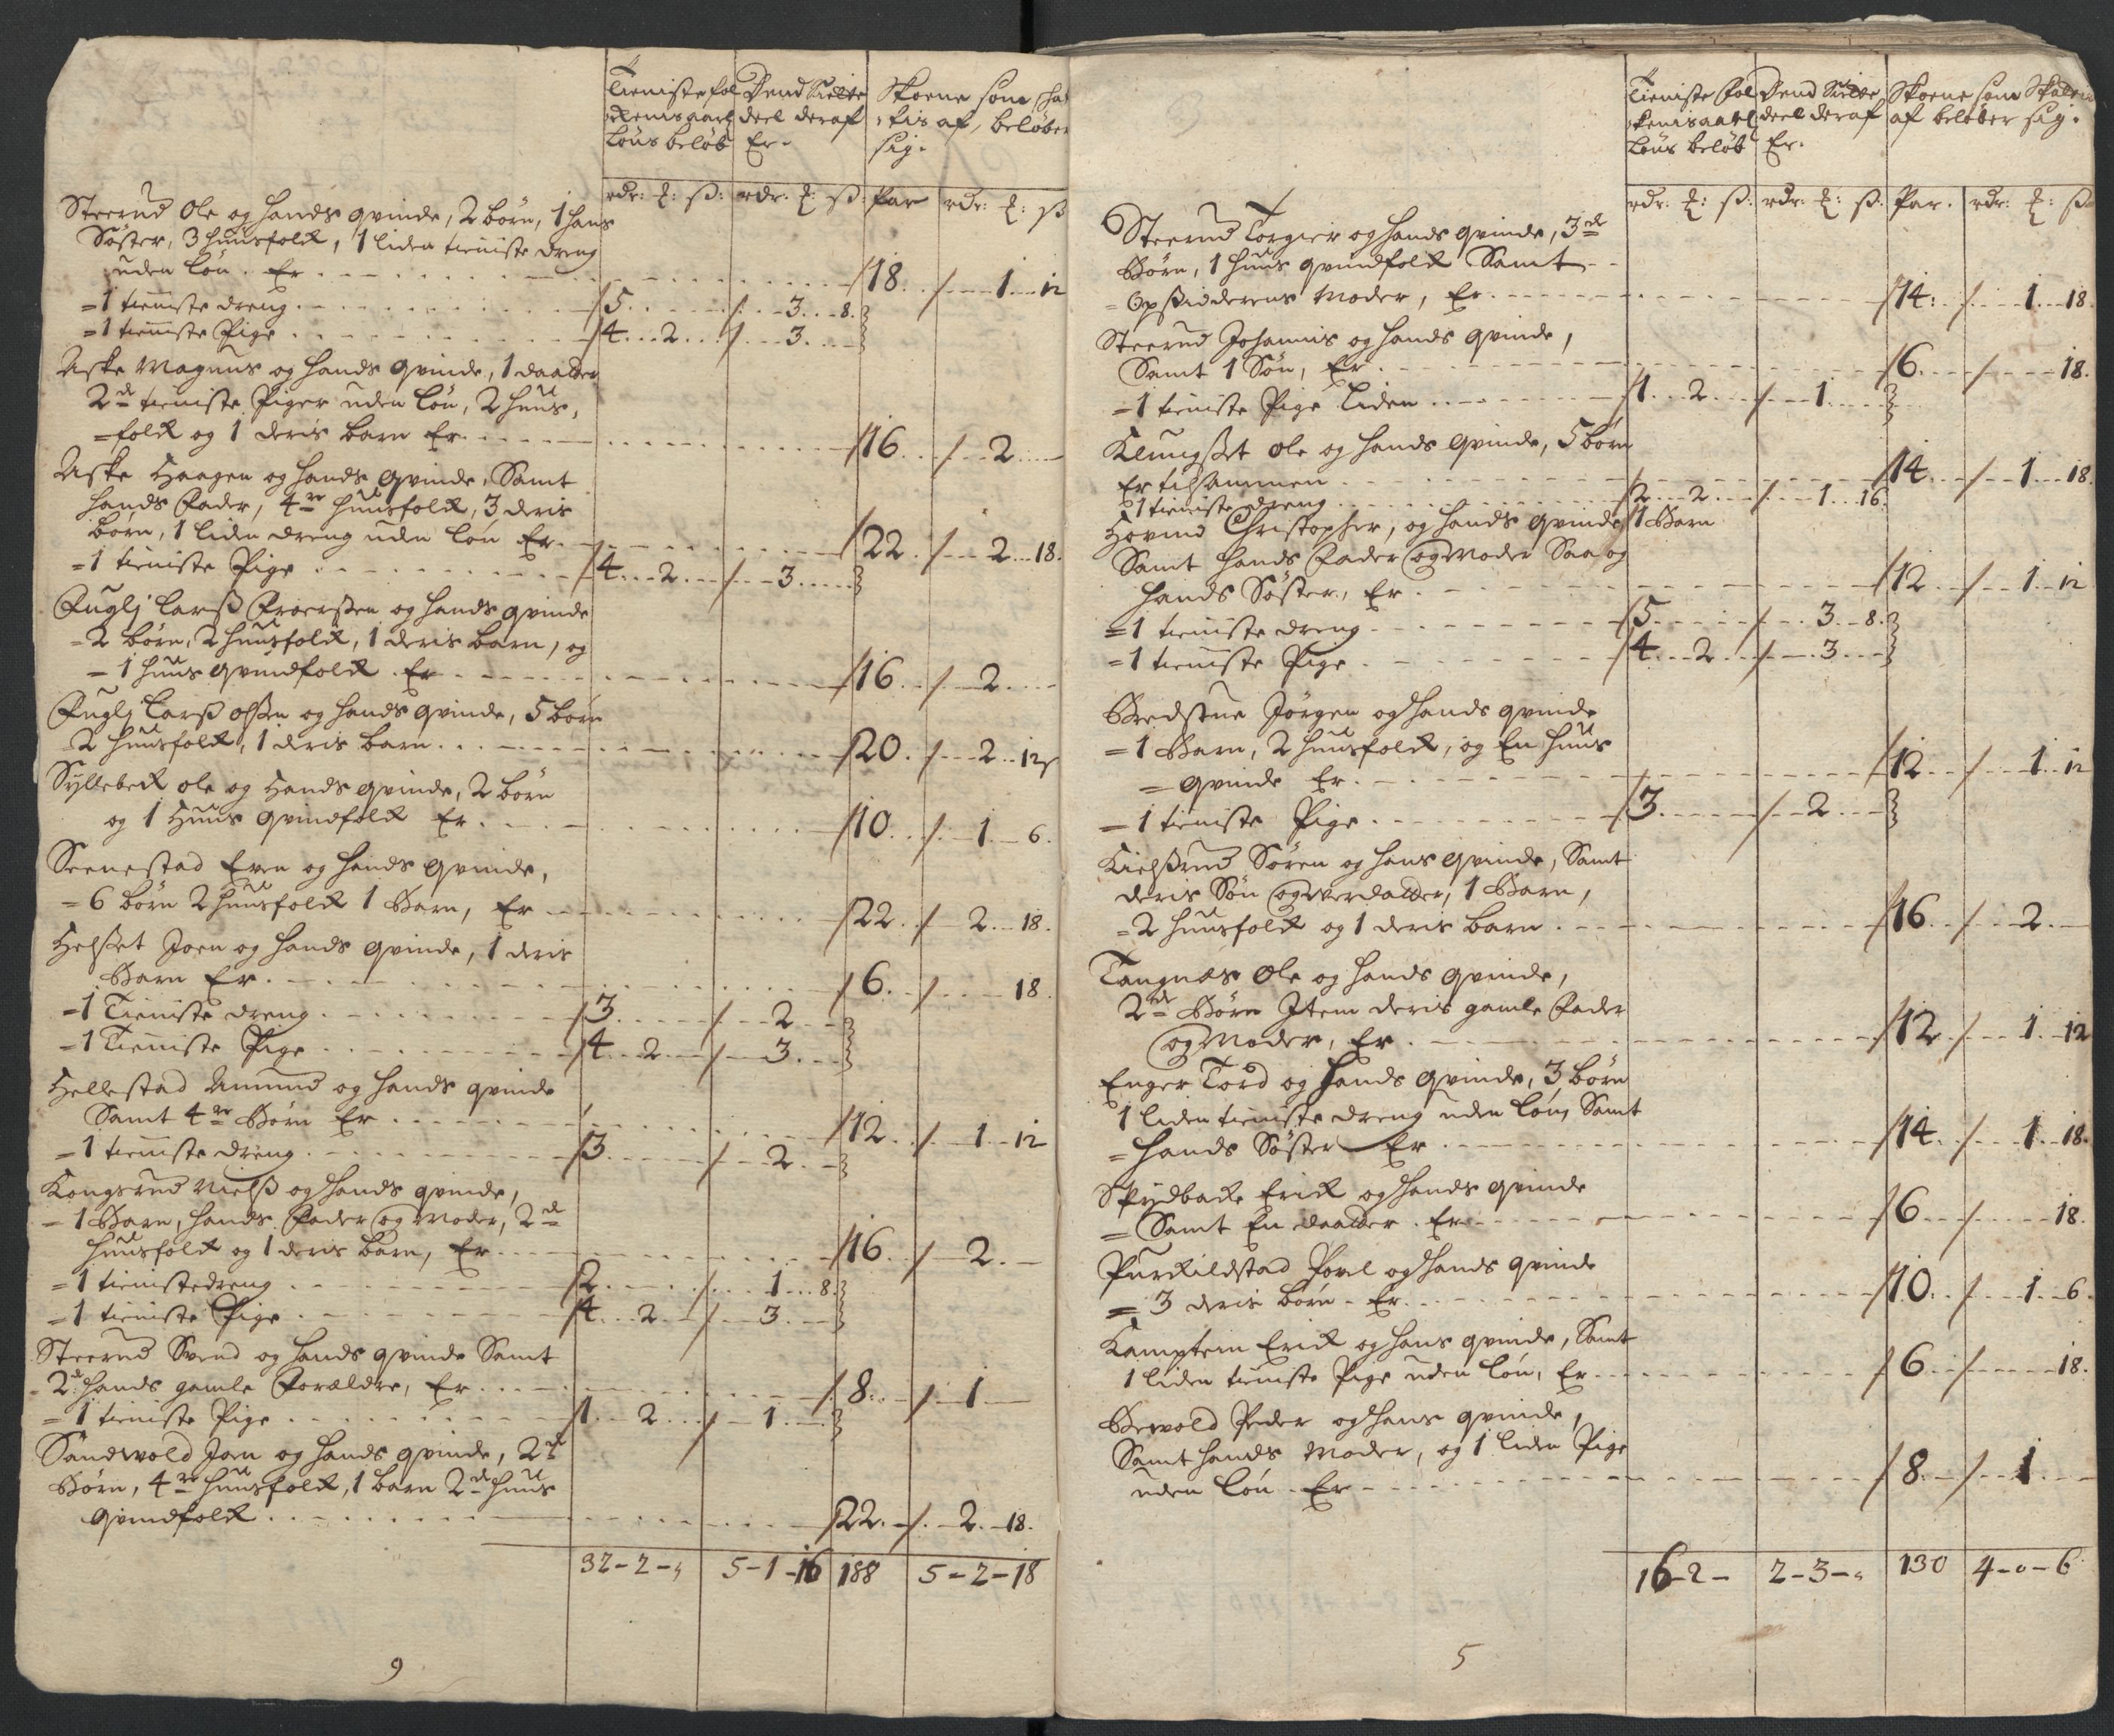 Tienistefol Dend Siette Skoene som skat
=kenis aarl deel deraf =tis af, beløber
Løns beløb Er. sig.
rdr: ꝑ: ß: rdr: ꝑ: ß: Par rdr: ꝑ: ß
Steerud Ole og hands qvinde, 2 børn, 1 hans
Søster, 3 huusfolk, 1 liden tieniste dreng
uden løn. Er 18. 1 12
=1 tieniste dreng 5 3 8.
=1 tieniste Pige 4 2 3
Aske Magnus og hands qvinde, 1 daatter
2de tieniste Piger uden løn, 2 huus,
=folk og 1 deris barn Er 16 2
Aske Haagen og hands qvinde, Samt
hands Fader, 4re huusfolk, 3 deris
børn, 1 liden dreng uden løn Er 22. 2 18.
=1 tieniste Pige 4 2 3
Fuglj Larß Froerßen og hands qvinde
=2 børn, 2 huusfolk, 1 deris barn, og
=1 huus qvindfolk Er 16 2
Fuglj Larß Olßen og hands qvinde, 5 børn
2 huusfolk, 1 deris barn 20. 2 12
Syllebek Ole og Hands qvinde, 2 børn
og 1 Huus qvindfolk Er. 10 1 6.
Seenestad Even og hands qvinde,
=6 børn 2 huusfolk 1 Barn, Er 22. 2 18.
Helßet Joen og hands qvinde, 1 deris
Barn Er. 6. 18.
=1 Tieniste dreng 3 2
=1 Tieniste Pige 4 2 3
Hellestad Amund og hands qvinde
Samt 4re Børn Er 12 1 12
=1 tieniste dreng 3 2
Kongsrud Nielß og hands qvinde,
=1 Barn, hands Fader og Moder, 2de
huusfolk og 1 deris barn, Er 16 2
=1 tienistedreng 2 1 8.
=1 tieniste Pige 4 2 3
Steerud Svend og hands qvinde Samt
=2de hands gamle Forældre, Er 8. 1
=1 tieniste Pige 1 2 1
Sandwold Joen og hands qvinde, 2de
Børn, 4re huusfolk, 1 barn 2de huus
qvindfolk 22 2 18.
32-2- 5-1-16 188 5-2-18
9
Tieniste Fol Dend Siette Skoene som Skatt
=kenis aarl deel deraf af beløber sig.
Løns beløb Er.
rdr: ꝑ: ß: rdr: ꝑ: ß. Par. rdr: ꝑ: ß
Steerud Torgier og hands qvinde, 3de
Børn, 1 huus qvindfolk Samt
=Opsidderens Moder, Er 14: 1 18.
Steerud Johannis og hands qvinde,
Samt 1 Søn, Er 6 18.
=1 tieniste Pige liden 1 2 1
Klungßet Ole og hands qvinde, 5 børn
Er tilsammen 14 1 18.
=1 tieniste dreng 2 2 1 16.
Hovind Christopher, og hands qvinde 1 Barn
Samt hands Fader og Moder Saa og
hands Søster, Er 12 1 12
=1 tieniste dreng 5 3 8.
=1 tieniste Pige 4 2 3
Bredstue Jørgen og hands qvinde
=1 Barn, 2 huusfolk, og En huus
=qvinde Er 12 1 12
=1 tieniste Pige 3 2
Kielßrud Søren og hans qvinde, Samt
deris Søn og Werdatter, 1 Barn,
=2 huusfolk og 1 deris barn 16 2
Tangnæs Ole og hands qvinde,
2de Børn Item deris gamle Fader
og Moder, Er 12 1 12
Enger Tord og hands qvinde, 3 børn
1 liden tieniste dreng uden løn, Samt
=hands Søster Er 14 1 18.
Spydbacke Erick og hands qvinde
=Samt En daatter. Er 6 18.
Purckildstad Povel og hands qvinde
=3 deris børn. Er 10 1 6.
Kampstein Erick og hans qvinde, Samt
1 liden tieniste Pige uden løn, Er 6 18.
Berwold Peder og hans qvinde,
Samt hands Moder, og 1 liden Pige
uden løn. Er 8 1
16-2- 2-3- 130 4-0-6
5